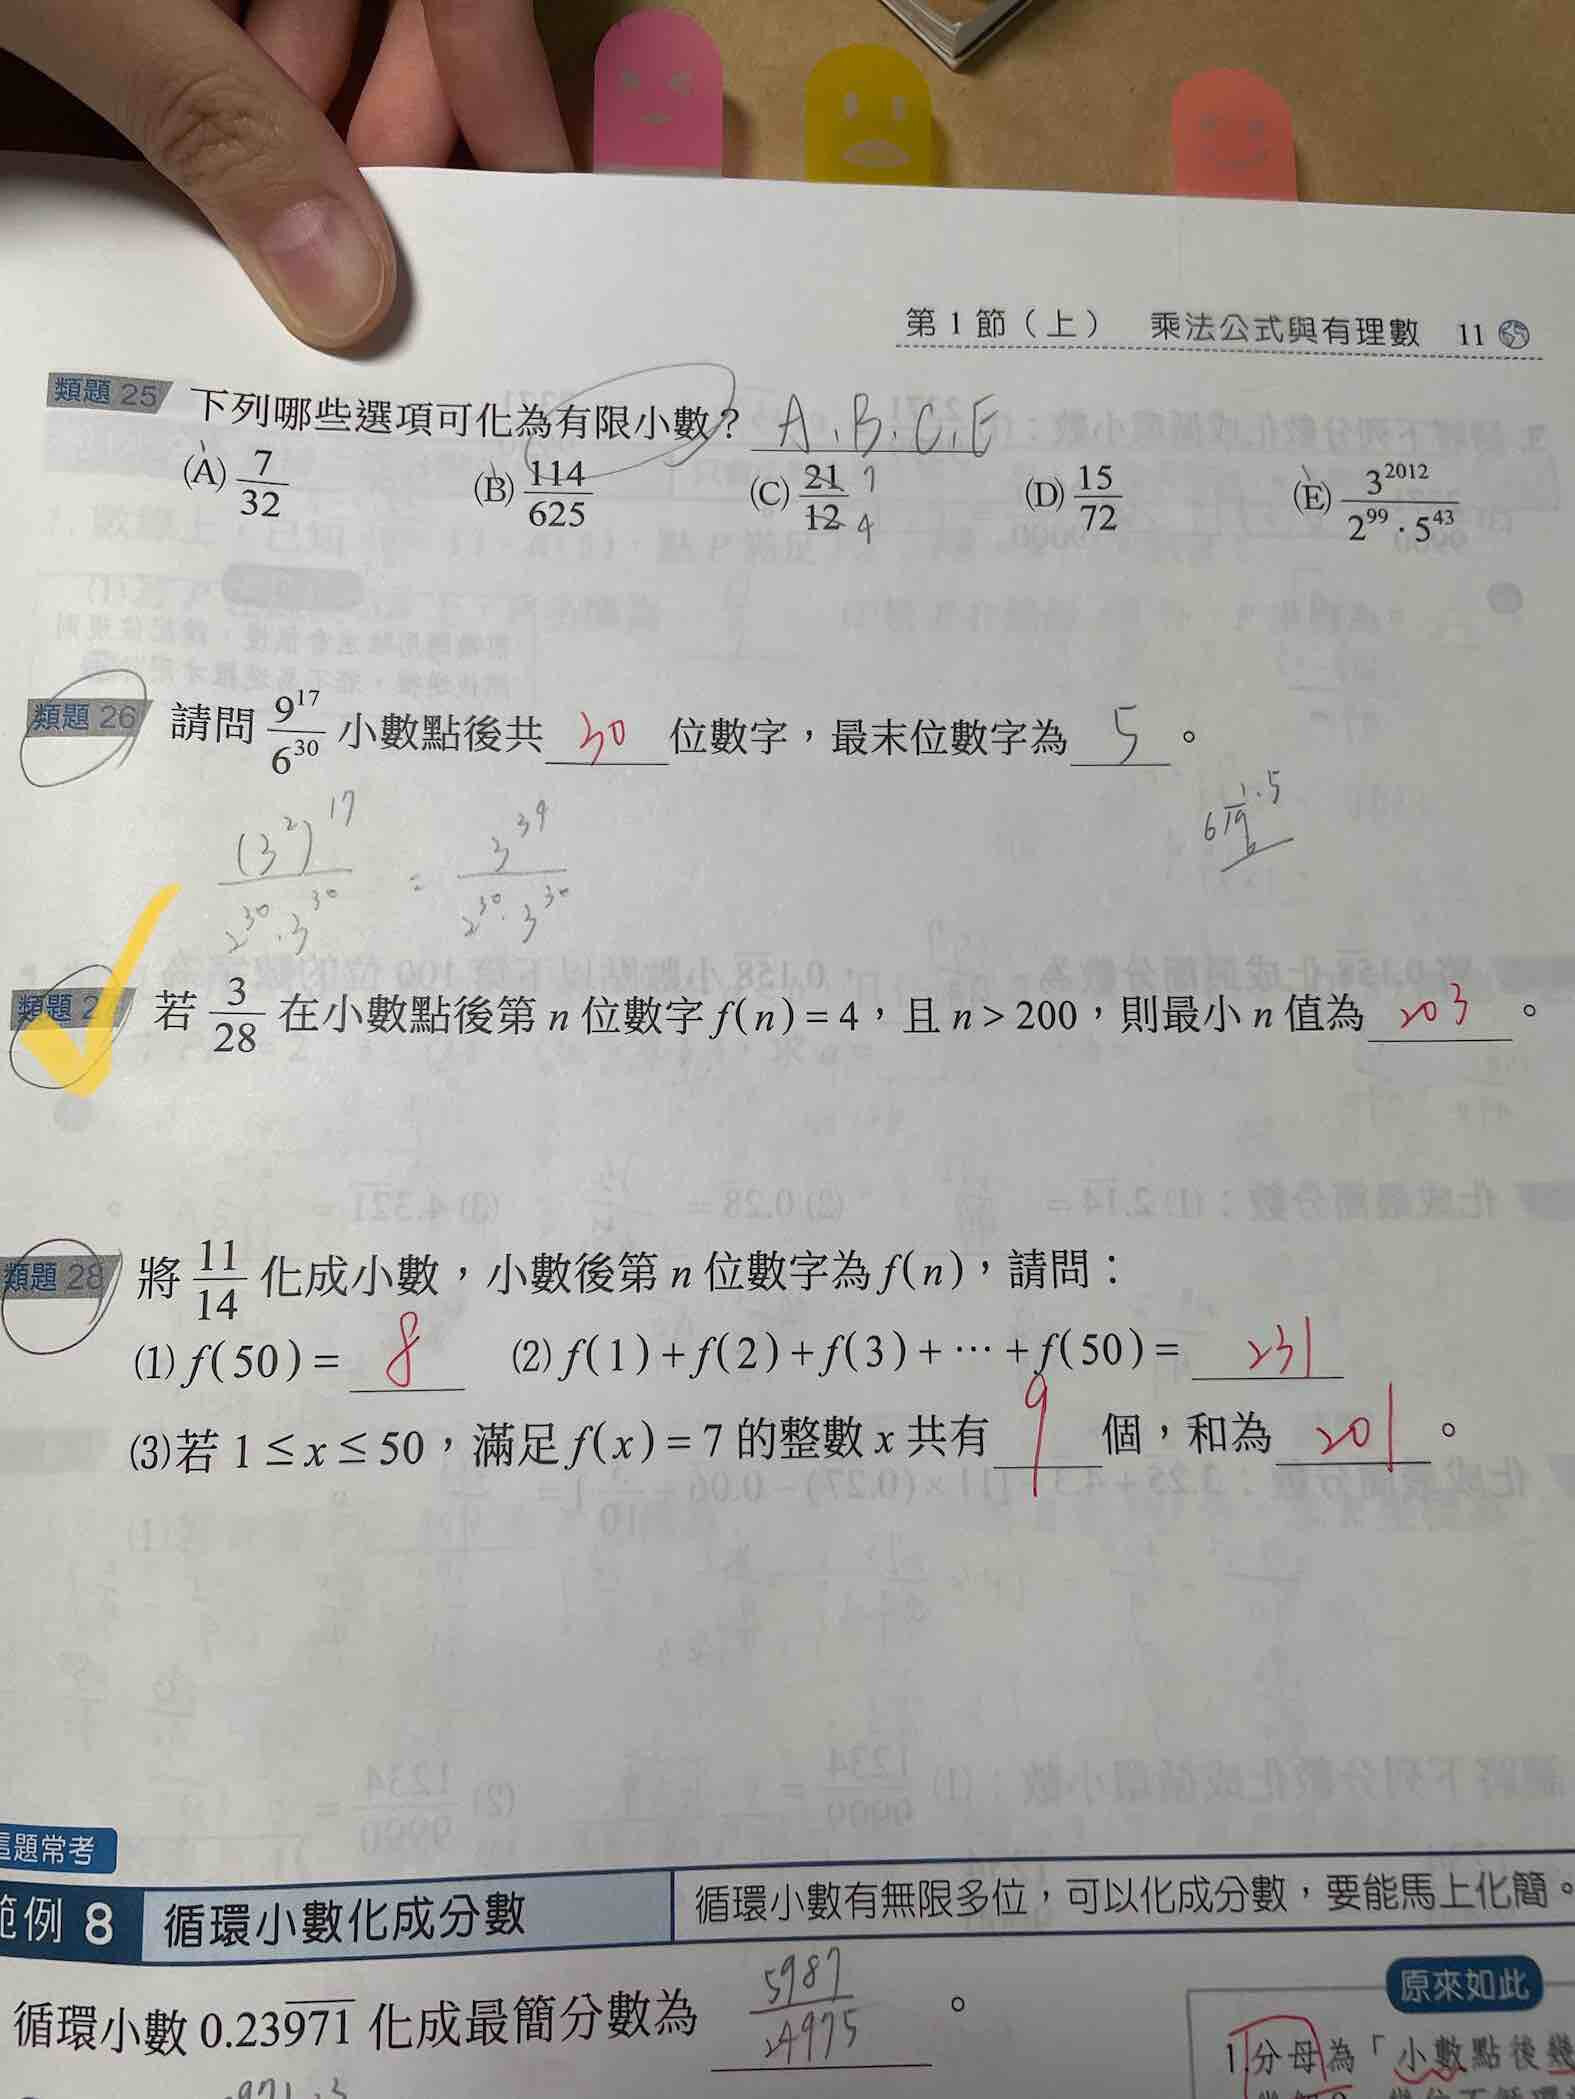 第1節（上） 乘法公式與有理數 11
類題 25 下列哪些選項可化為有限小數？ A、B、C、E
(A) 7/32 (B) 114/625 (C) 21/12 7 4 (D) 15/72 (E) 3^2012/(2^99·5^43)
類題 26 請問 9^17/6^30 小數點後共 30 位數字，最末位數字為 5 。
(3^2)^17/(2^30·3^30) = 3^34/(2^30·3^30)
類題 2 若 3/28 在小數點後第 n 位數字 f(n)=4，且 n>200，則最小 n 值為 203 。
類題 28 將 11/14 化成小數，小數後第 n 位數字為 f(n)，請問：
(1) f(50)= 8 (2) f(1)+f(2)+f(3)+⋯+f(50)= 231
(3)若 1≤x≤50，滿足 f(x)=7 的整數 x 共有 9 個，和為 201 。
這題常考
範例 8 循環小數化成分數 循環小數有無限多位，可以化成分數，要能馬上化簡。
循環小數 0.23971 化成最簡分數為 5987/24975 。
原來如此
1.分母為「小數點後幾